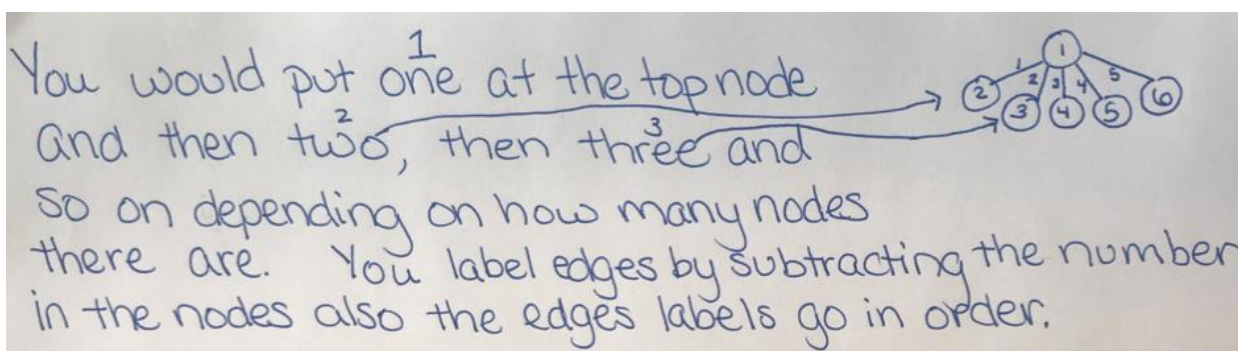 You would put one at the top node
1
and then two, then three and
2 3
so on depending on how many nodes
there are. You label edges by subtracting the number
in the nodes also the edges labels go in order.
1
1 2 3 4 5
2 3 4 5 6